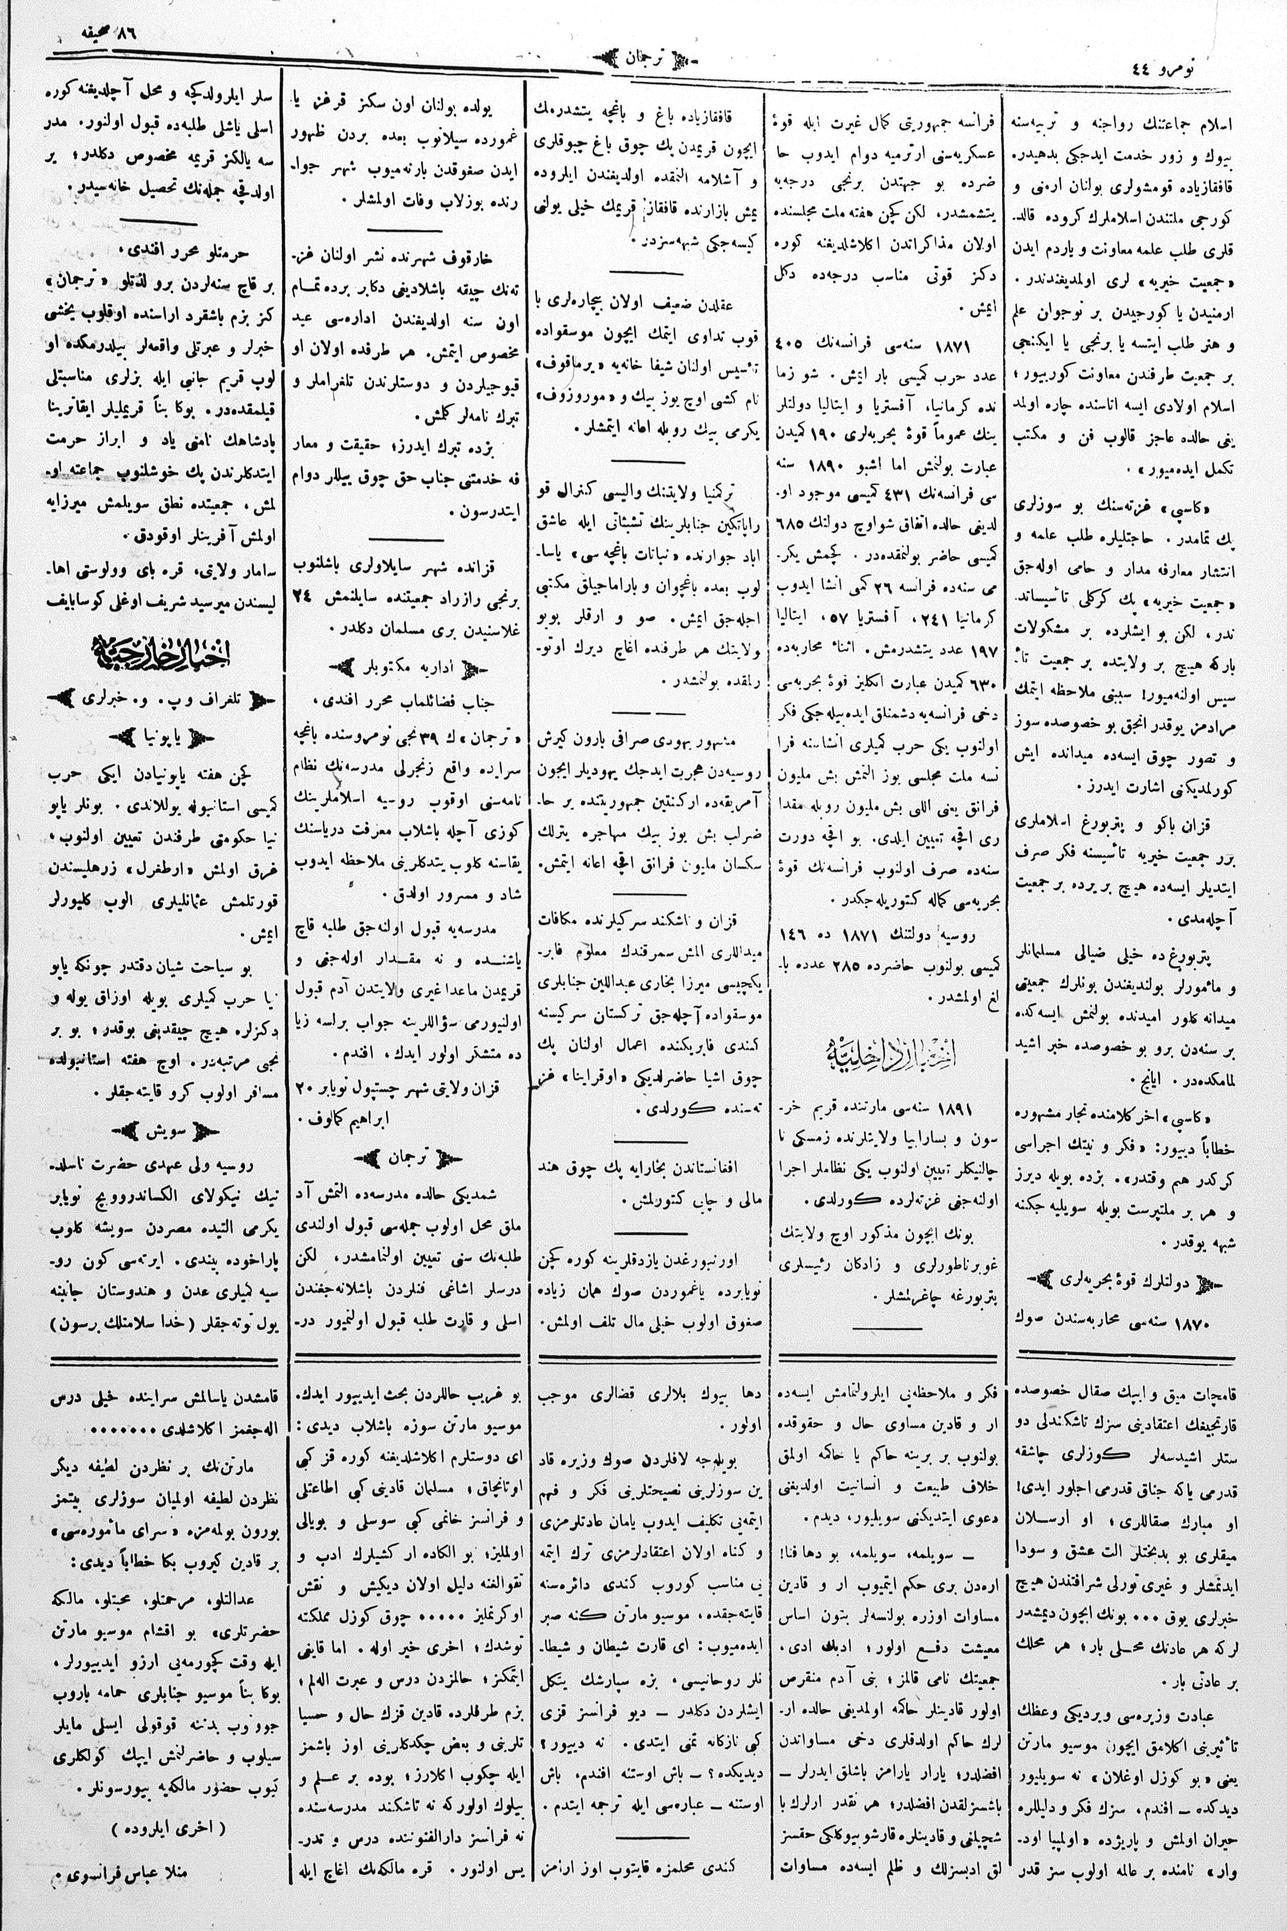 نومرو ٤٤
ترجمان
٨٦ صحيفه
اسلام جماعتنك رواجنه و تربيه‌سنه
بيوك و زور خدمت ايدجكى بدهيدر.
قافقازياده قومشولرى بولنان ارمنى و
كورجى ملتندن اسلاملرك كروده قالد-
قلرى طلب علمه معاونت و ياردم ايدن
«جمعيت خيريه» لرى اولمديغندندر.
ارمنيدن يا كورجيدن بر نوجوان علم
و هنر طلب ايتسه يا برنجى يا ايكنجى
بر جمعيت طرفندن معاونت كوريور؛
اسلام اولادى ايسه اتاسنده چاره اولمد
يغى حالده عاجز قالوب فن و مكتب
تكمل ايده‌ميور».
«كاسپى» غزته‌سنك بو سوزلرى
پك تمامدر. حاجتليلره طلب علمه و
انتشار معارفه مدار و حامى اوله‌جق
«جمعيت خيريه» پك كركلى تأسيساتد-
ندر، لكن بو ايشلرده بر مشكولات
باركه هيچ بر ولايتده بر جمعيت تأ-
سيس اولنه‌ميور! سببنى ملاحظه ايتمك
مرادمز يوقدر انجق بو خصوصده سوز
و تصور چوق ايسه‌ده ميدانده ايش
كورلمديكنى اشارت ايدرز.
قزان باكو و پتربورغ اسلاملرى
برر جمعيت خيريه تأسيسنه فكر صرف
ايتديلر ايسه‌ده هيچ بر يرده بر جمعيت
آچله‌مدى.
پتربورغ ده خيلى ضيالى مسلمانلر
و مأمورلر بولنديغندن بونلرك جمعيتى
ميدانه كلور اميدنده بولنمش ايسه‌كده
بر سنه‌دن برو بو خصوصده خبر اشيد
لمامكده‌در. ايانج.
«كاسپى» اخر كلامنده تجار مشهوره
خطاباً ديیور: «فكر و نيتك اجراسى
كركدر هم وقتدر». بزده بويله ديرز
و هر بر ملتپرست بويله سويليه جكنه
شبهه يوقدر.
دولتلرك قوهٔ بحريه‌لرى
١٨٧٠ سنه‌سى محاربه‌سندن صوك
فرانسه جمهوريتى كمال غيرت ايله قوهٔ
عسكريه‌سنى ارترميه دوام ايدوب حا
ضرده بو جهتدن برنجى درجه‌يه
يتشمشدر، لكن كچن هفته ملت مجلسنده
اولان مذاكراتدن اكلاشلديغنه كوره
دكز قوتى مناسب درجه‌ده دكل
ايمش.
١٨٧١ سنه‌سى فرانسه‌نك ٤٠٥
عدد حرب كميسى بار ايمش. شو زما
نده كرمانيا، آفستريا و ايتاليا دولتلر
ينك عموماً قوهٔ بحريه‌لرى ١٩٠ كميدن
عبارت بولنمش اما اشبو ١٨٩٠ سنه
سى فرانسه‌نك ٤٣١ كميسى موجود او-
لديغى حالده اتفاق شو اوچ دولتك ٦٨٥
كميسى حاضر بولنمقده‌در. كچمش يكر-
مى سنه‌ده فرانسه ٢٦ كمى انشا ايدوب
كرمانيا ٢٤١، آفستريا ٥٧، ايتاليا
١٩٧ عدد يتشدرمش. اثناء محاربه‌ده
٦٣٠ كميدن عبارت انكليز قوهٔ بحريه‌سى
دخى فرانسه‌يه دشمنلق ايده‌بيله جكى فكر
اولنوب يكى حرب كميلرى انشاسنه فرا
نسه ملت مجلسى يوز التمش بش مليون
فرانق يعنى اللى بش مليون روبله مقدا
رى اقچه تعيين ايلدى. بو اقچه دورت
سنه‌ده صرف اولنوب فرانسه‌نك قوهٔ
بحريه‌سى كماله كتوريله‌جكدر.
روسيه دولتنك ١٨٧١ ده ١٤٦
كميسى بولنوب حاضرده ٢٨٥ عدده با-
لغ اولمشدر.
اخبار داخليه
١٨٩١ سنه‌سى مارتنده قريم خر-
سون و بسارابيا ولايتلرنده زمسكى نا
چالنيكلر تعيين اولنوب يكى نظاملر اجرا
اولنه‌جغى غزته‌لرده كورلدى.
بونك ايچون مذكور اوچ ولايتك
غوبرناطورلرى و زادكان رئيسلرى
پتربورغه چاغرلمشلر.
قافقازياده باغ و باغچه يتشدرمك
ايچون قريمدن پك چوق باغ چبوقلرى
و آشلامه النمقده اولديغندن ايلروده
يمش بازارنده قافقاز قريمك خيلى يولنى
كيسه‌جكى شبهه‌سزدر.
عقلدن ضعيف اولان بيچاره‌لرى با
قوب تداوى ايتمك ايچون موسقواده
تأسيس اولنان شفا خانه‌يه «يرماقوف»
نام كشى اوچ يوز بيك و «موروزوف»
يكرمى بيك روبله اعانه ايتمشلر.
تركمنيا ولايتنك واليسى كنرال قو
راپاتكين جنابلرينك تشبثاتى ايله عاشق
اباد جوارنده «نباتات باغچه سى» ياسا-
لوب بعده باغچوان و باراماجيلق مكتبى
اچله‌جق ايمش. صو و ارقلر بويو
ولايتك هر طرفنده اغاچ ديرك اوتو-
رلمقده بولنمشدر.
مشهور يهودى صرافى بارون كيرش
روسيه‌دن هجرت ايدجك يهوديلر ايچون
آمريقه‌ده اركنتين جمهوريتنده بر حا-
ضرلب بش يوز بيك مهاجره يترلك
سكسان مليون فرانق اقچه اعانه ايتمش.
قزان و تاشكند سركيلرنده مكافات
ميداللرى المش سمرقندك معلوم فابر-
يكچيسى ميرزا بخارى عبداللبن جنابلرى
موسقواده آچله‌جق تركستان سركيسنه
كندى فابريكنده اعمال اولنان پك
چوق اشيا حاضرلديكى «اوقراينا» غز
ته‌سنده كورلدى.
افغانستاندن بخارايه پك چوق هند
مالى و چاى كتورلمش.
اورنبورغدن يازدقلرينه كوره كچن
نويابرده ياغموردن صوك همان زياده
صغوق اولوب خيلى مال تلف اولمش.
يولده بولنان اون سكز قرغز يا
غمورده سيلانوب بعده بردن ظهور
ايدن صغوقدن بارنه‌ميوب شهر جوا-
رنده بوزلاب وفات اولمشلر.
خارقوف شهرنده نشر اولنان غز-
ته‌نك چيقه باشلاديغى دكابر برده تمام
اون سنه اولديغندن اداره‌سى عيد
مخصوص ايتمش. هر طرفده اولان او
قيوجيلردن و دوستلرندن تلغراملر و
تبرك نامه‌لر كلمش.
بزده تبرك ايدرز؛ حقيقت و معار
فه خدمتنى جناب حق چوق ييللر دوام
ايتدرسون.
قزانده شهر سايلاولرى باشلنوب
برنجى رازراد جمعيتنده سايلنمش ٢٤
غلاسنيدن برى مسلمان دكلدر.
اداريه مكتوبلر
جناب فضائلماب محرر افندى،
«ترجمان» ك ٣٩ نجى نومروسنده باغچه
سرايده واقع زنجرلى مدرسه‌نك نظام
نامه‌سنى اوقوب روسيه اسلاملرينك
كوزى آچله باشلاب معرفت درياسنك
يقاسنه كلوب يتدكلرينى ملاحظه ايدوب
شاد و مسرور اولدق.
مدرسه‌يه قبول اولنه‌جق طلبه قاچ
ياشنده و نه مقدار اوله‌جغى و
قريمدن ماعدا غيرى ولايتدن آدم قبول
اولنيورمى سؤاللرينه جواب برلسه زيا
ده متشكر اولور ايدك، افندم.
قزان ولايتى شهر چستپول نويابر ٢٠
ابراهيم كمالوف.
ترجمان
شمديكى حالده مدرسه‌ده التمش آد
ملق محل اولوب جمله‌سى قبول اولندى
طلبه‌نك سنى تعيين اولنمامشدر، لكن
درسلر اشاغى فنلردن باشلانه‌جغندن
اسلى و قارت طلبه قبول اولنميور در-
سلر ايلرولدكچه و محل آچلديغنه كوره
اسلى ياشلى طلبه‌ده قبول اولنور. مدر
سه يالكز قريمه مخصوص دكلدر؛ ير
اولدقچه جمله‌نك تحصيل خانه‌سيدر.
حرمتلو محرر افندى.
بر قاچ سنه‌لردن برو لذتلو «ترجمان»
كز بزم باشقرد اراسنده اوقلوب يخشى
خبرلر و عبرتلى واقعه‌لر بيلدرمكده او
لوب قريم جانبى ايله بزلرى مناسبتلى
قيلمقده‌در. بوكا بناً قريمليلر ايقاترينا
پادشاهك نامنى ياد و ابراز حرمت
ايتدكلرندن پك خوشلنوب جماعته او-
لمش، جمعيتده نطق سويلمش ميرزايه
اولمش آفرينلر اوقودق.
سامار ولايتى، قره باى وولوستى اها-
ليسندن ميرسيد شريف اوغلى كوسابايف
اخبار خارجيه
تلغراف و پ. و. خبرلرى
ياپونيا
كچن هفته ياپونيادن ايكى حرب
كميسى استانبوله يوللاندى. بونلر ياپو
نيا حكومتى طرفندن تعيين اولنوب،
غرق اولمش «ارطغرل» زرهليسندن
قورتلمش عثمانليلرى الوب كليورلر
ايمش.
بو سياحت شيان دقتدر چونكه ياپو
نيا حرب كميلرى بويله اوزاق يوله و
دكزلره هيچ چيقديغى يوقدر؛ بو بر
نجى مرتبه‌در. اوچ هفته استانبولده
مسافر اولوب كرو قايته‌جقلر.
سويش
روسيه ولى عهدى حضرت ناسلد-
نيك نيكولاى الكساندروويچ نويابر
يكرمى التيده مصردن سويشه كلوب
پاراخوده بيندى. ايرته‌سى كون رو-
سيه كميلرى عدن و هندوستان جانبنه
يول توته‌جقلر (خدا سلامتلك برسون)
قامچات ميق و ايپك صقال خصوصده
قارتجيغك اعتقادينى سزك تاشكندلى دو
ستلر اشيدسه‌لر كوزلرى چاشقه
قدرمى ياكه جناق قدرمى اجلور ايدى!
او مبارك صقاللرى؛ او ارسلان
ميقلرى بو بدبختلر الت عشق و سودا
ايدنمشلر و غيرى تورلى شرافتندن هيچ
خبرلرى يوق ٠٠٠ بونك ايچون ديمشدر
لركه هر عادتك محلى بار؛ هر محلك
بر عادتى بار.
عبادت وزيره‌سى ويرديكى وعظك
تأثيرينى اكلامق ايچون موسيو مارتن
يعنى «بو كوزل اوغلان» نه سويليور
ديدكده ـ افندم، سزك فكر و دليللره
حيران اولمش و پاريژده «اولمپيا اود-
وار» نامنده بر عالمه اولوب سز قدر
فكر و ملاحظه‌يى ايلرولتمامش ايسه‌ده
ار و قادين مساوى حال و حقوقده
بولنوب بر برينه حاكم يا حاكمه اولمق
خلاف طبيعت و انسانيت اولديغنى
دعوى ايتديكنى سويليور، ديدم.
ـ سويلمه، سويلمه، بو دها فنا!
اره‌دن برى حكم ايتميوب ار و قادين
مساوات اوزره بولنسه‌لر بتون اساس
معيشت دفع اولور؛ ادبك ادى.
جمعيتك نامى قالمز؛ بنى آدم منقرص
اولور قادينلر حاكمه اولمديغى حالده ار-
لرك حاكم اولدقلرى دخى مساواتدن
افضلدر؛ يارار يارامز باشلق ايدرلر ـ
باشسزلقدن افضلدر؛ هر نقدر ارلرك با
شجيلغى و قادينلره قارشو بيوكلكى حقسز
لق ادبسزلك و ظلم ايسه‌ده مساوات
دها بيوك بلالرى قضالرى موجب
اولور.
بويله‌جه لافلردن صوك وزيره قاد
ين سوزلرينى نصيحتلرينى فكر و فهم
ايتمه‌يى تكليف ايدوب يامان عادتلرمزى
و كناه اولان اعتقادلرمزى ترك ايتمه
يى مناسب كوروب كندى دائره‌سنه
قايته‌جقده، موسيو مارتن كنه صبر
ايده‌ميوب: اى قارت شيطان و شيطا-
نلر روحانيسى. بزه سپارشك يتكل
ايشلردن دكلدر ـ ديو فرانسز قزى
كبى نازكانه تمنى ايتدى. نه دييور؟
ديديكده؟ ـ باش اوستنه افندم، باش
اوستنه ـ عباره‌سى ايله ترجمه ايتدم.
كندى محلمزه قايتوب اوز ارامز
بو غريب حاللردن بحث ايديیور ايدك.
موسيو مارتن سوزه باشلاب ديدى:
اى دوستلرم اكلاشلديغنه كوره قز كبى
اوتانچاق؛ مسلمان قادينى كبى اطاعتلى
و فرانسز خانمى كبى سوسلى و بويالى
اولمليز؛ بو الكاده ار كشيلرك ادب و
تقوالغنه دليل اولان ديكيش و نقش
اوكرنمليز ٠٠٠٠٠ چوق كوزل مملكته
توشدك؛ اخرى خير اوله. اما قايغى
ايتمكز؛ حالمزدن درس و عبرت اله‌لم؛
بزم طرفلرده قادين قزك حال و حسيا
تلرينى و بعض چكدكلرينى اوز باشمز
ايله چكوب اكلارز؛ بوده بر علم و
بيلوك اولوركه نه تاشكند مدرسه‌سنده
نه فرانسز دارالفنوننده درس و تدر-
يس اولنور. قره مالكه‌نك اغاچ ايله
قامشدن ياسالمش سراينده خيلى درس
اله‌جغمز اكلاشلدى ٠٠٠٠٠٠٠
مارتن‌ك بر نظردن لطيفه ديگر
نظردن لطيفه اولميان سوزلرى بيتمز
بورون بولمه‌مزه «سراى مأموره‌سى»
بر قادين كيروب بكا خطاباً ديدى:
عدالتلو، مرحمتلو، محبتلو، مالكه
حضرتلرى» بو اقشام موسيو مارتن
ايله وقت كچورمه‌يى ارزو ايدييورلر،
بوكا بناً موسيو جنابلرى حمامه باروب
جوونوب بدننه قوقولى ايسلى مايلر
سيلوب و حاضرلنمش ايپك كولكلرى
كيوب حضور مالكه‌يه بيورسونلر.
(اخرى ايلروده)
منلا عباس فرانسوى.